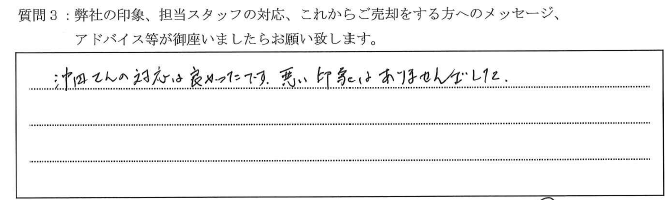 質問3：弊社の印象、担当スタッフの対応、これからご売却をする方へのメッセージ、
アドバイス等が御座いましたらお願い致します。
沖田さんの対応は良かったです。悪い印象はありませんでした。